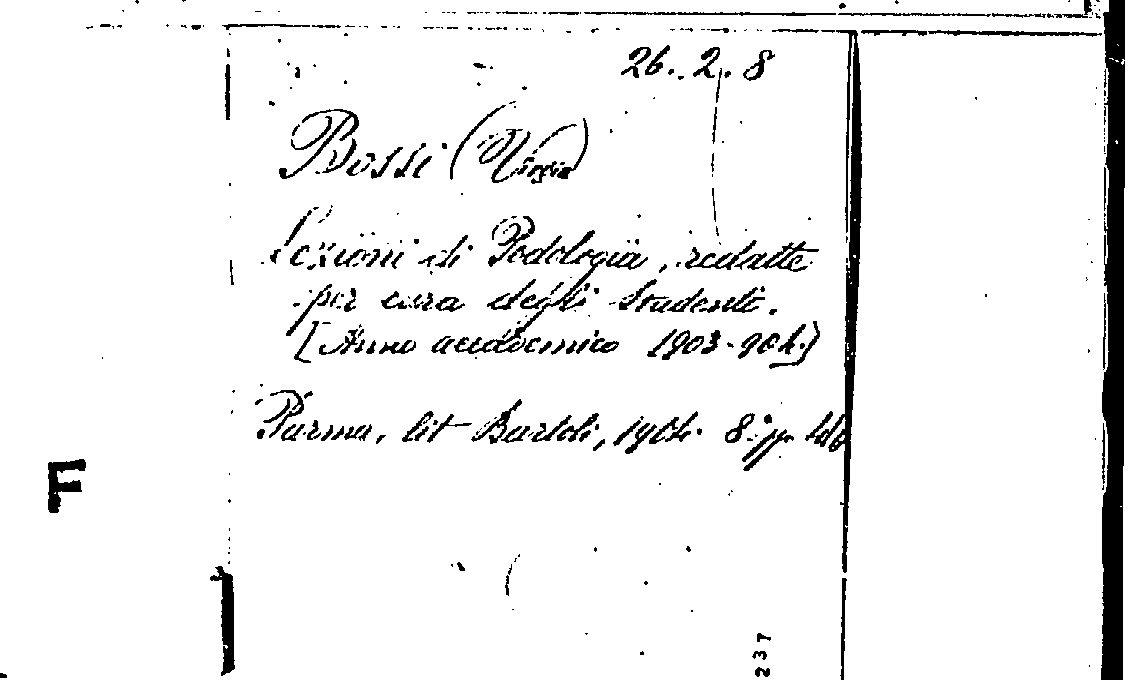 26. 2. 8
Bossi (Virgin)
Lezioni di Podologia, redatte
per cura degli Studenti.
[Anno accademico 1903-904.]
Parma, lit Bartoli, 1904. 8.° pp.
F
237